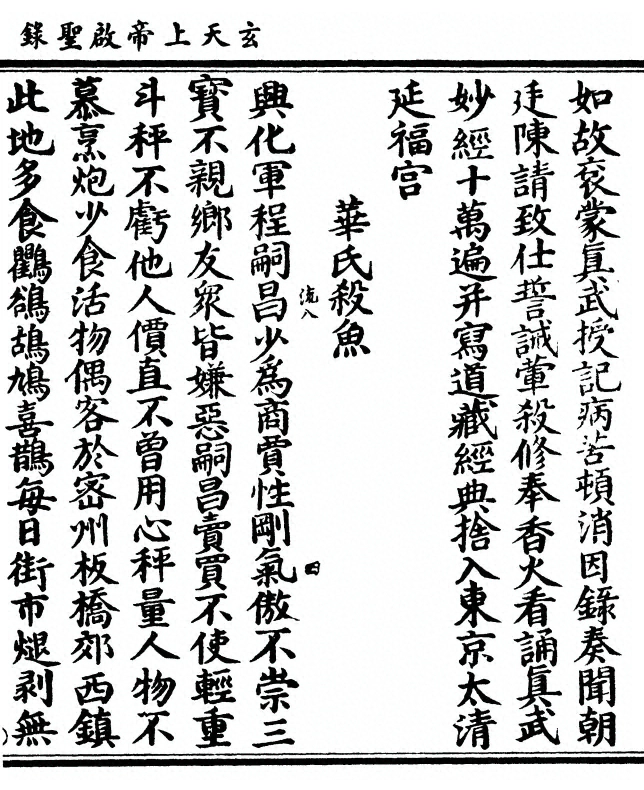 玄天上帝啟聖錄
如故裒蒙眞武授記病苦頓消因錄奏聞朝
廷陳請致仕誓誡葷殺修奉香火看誦眞武
妙經十萬遍并寫道藏經典捨入東京太清
延福宮
華氏殺魚
流八 四
興化軍程嗣昌少爲商賈性剛氣傲不崇三
寶不親鄉友眾皆嫌惡嗣昌賣買不使輕重
斗秤不虧他人價直不曾用心秤量人物不
慕烹炮少食活物偶客於密州板橋郊西鎮
此地多食鸜鵒鴣鳩喜鵲每日街市煺剥無